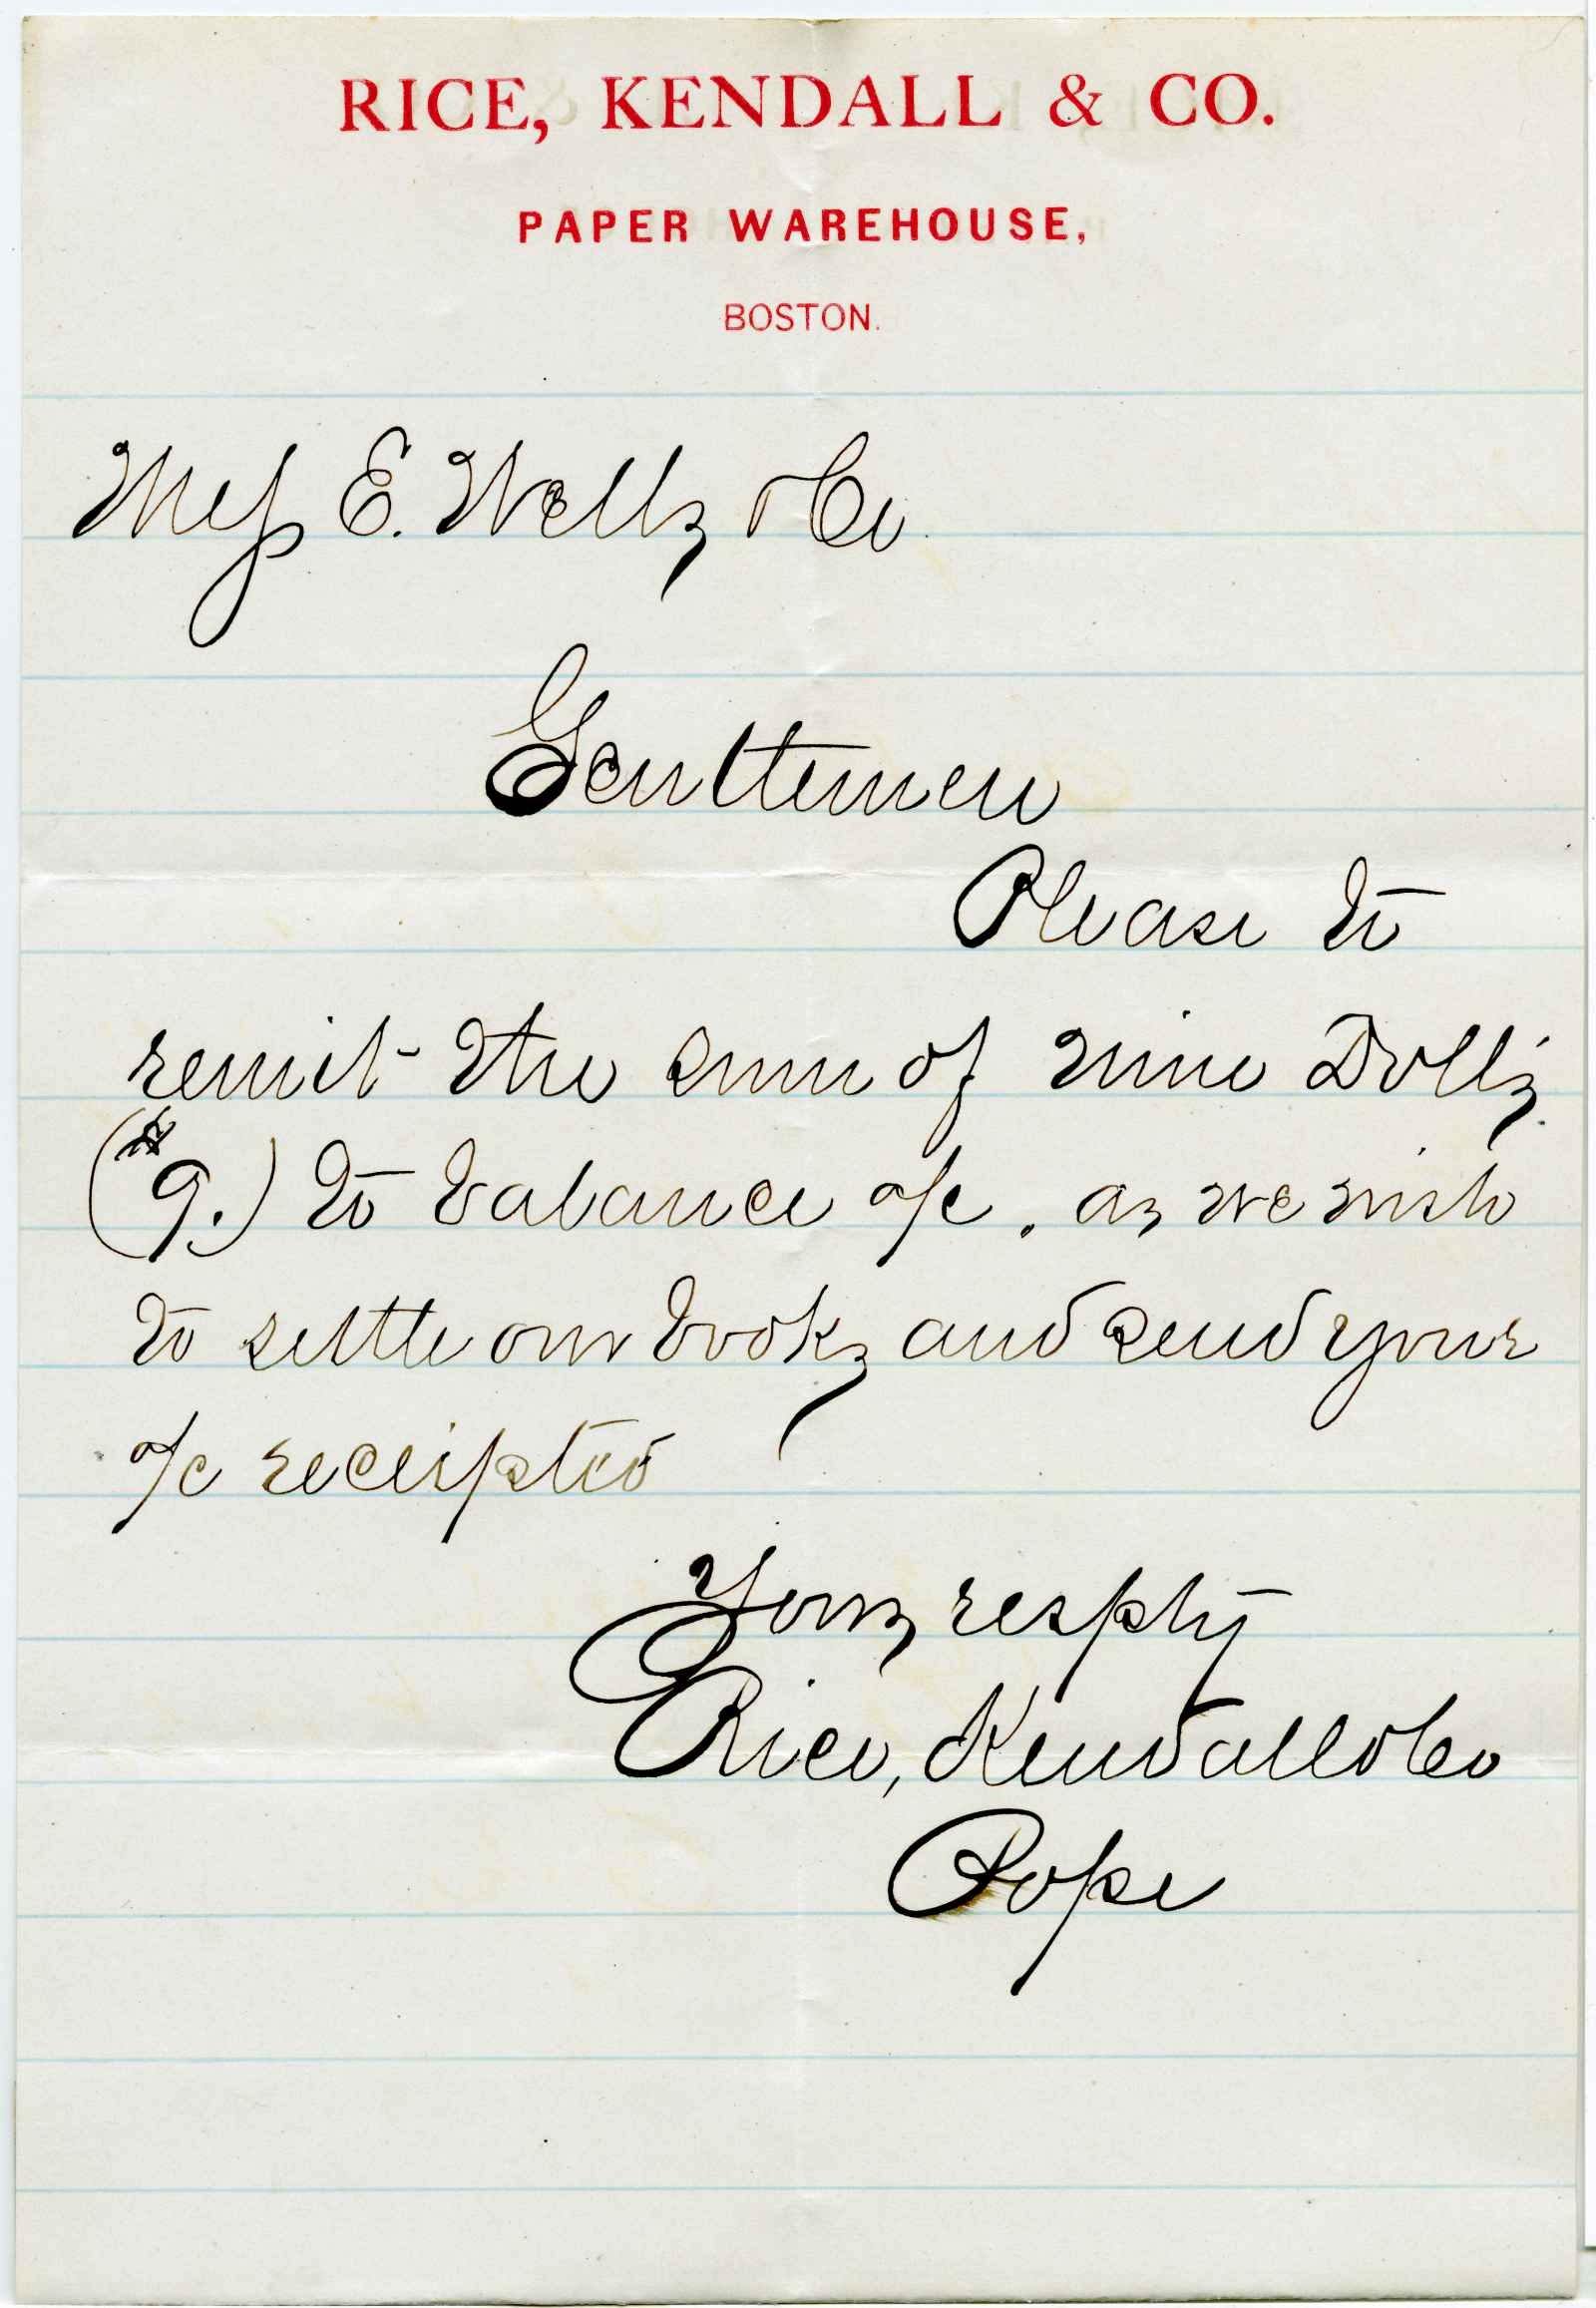 RICE, KENDALL & CO.
PAPER WAREHOUSE,
BOSTON.
Mess E. Wells & Co.
Gentlemen
Please to
remit the sum of nine Dolls.
($9.) to balance a/c. as we wish
to settle our books and send your
a/c receipted
Yours resply
Rice, Kendall & Co
Pope